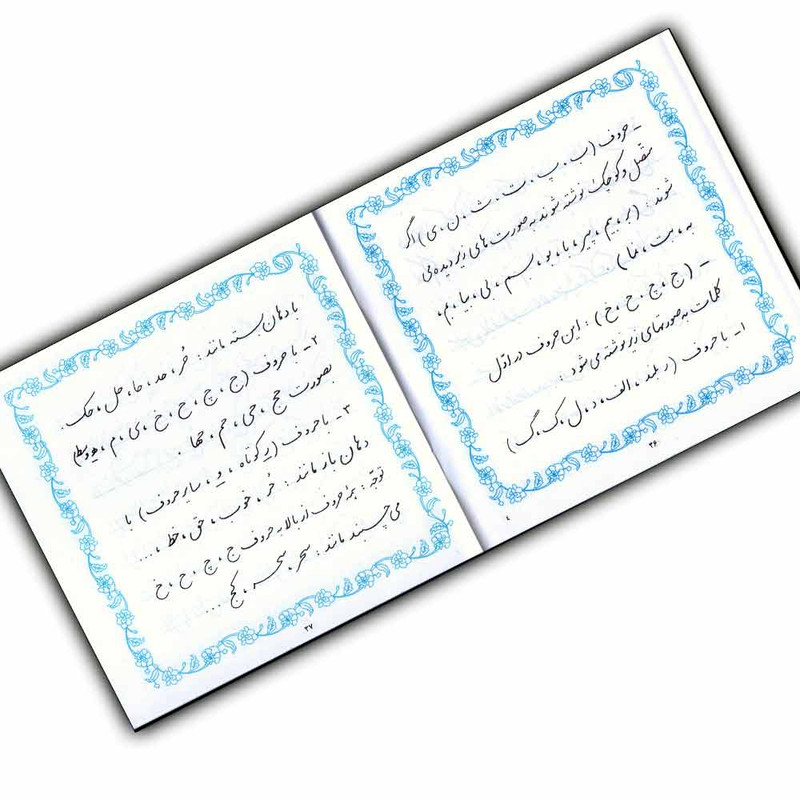 ـ حروف (ب . پ . ت . ث . ن . ی) اگر
متصل و کوچک نوشته شوند به صورت های زیر دیده می
شوند : (بر ، بیم ، پیر ، با ، بو ، بسم ، بی ، بیا ، بم ،
به ، بت ، نما) .
ـ (ج ، چ ، ح ، خ) : این حروف در اول
کلمات به صورتهای زیر نوشته می شود :
۱ـ با حروف (ر بلند ، الف ، د ، ل ، ک ، گ)
۲۶
با دهان بسته مانند : خُر ، حد ، حا ، حل ، حک .
۲ـ با حروف (ج ، چ ، ح ، خ ، ی ، م ، ه وسط)
بصورت حج ، حی ، حم ، حها .
۳ـ با حروف (ر کوتاه ، و ، سایر حروف) با
دهان باز مانند : حُر ، خوب ، حق ، خط ، ...
توجه : همهٔ حروف از بالا به حروف ج ، چ ، ح ، خ
می چسبند مانند : سحر ، کج ...
۲۷